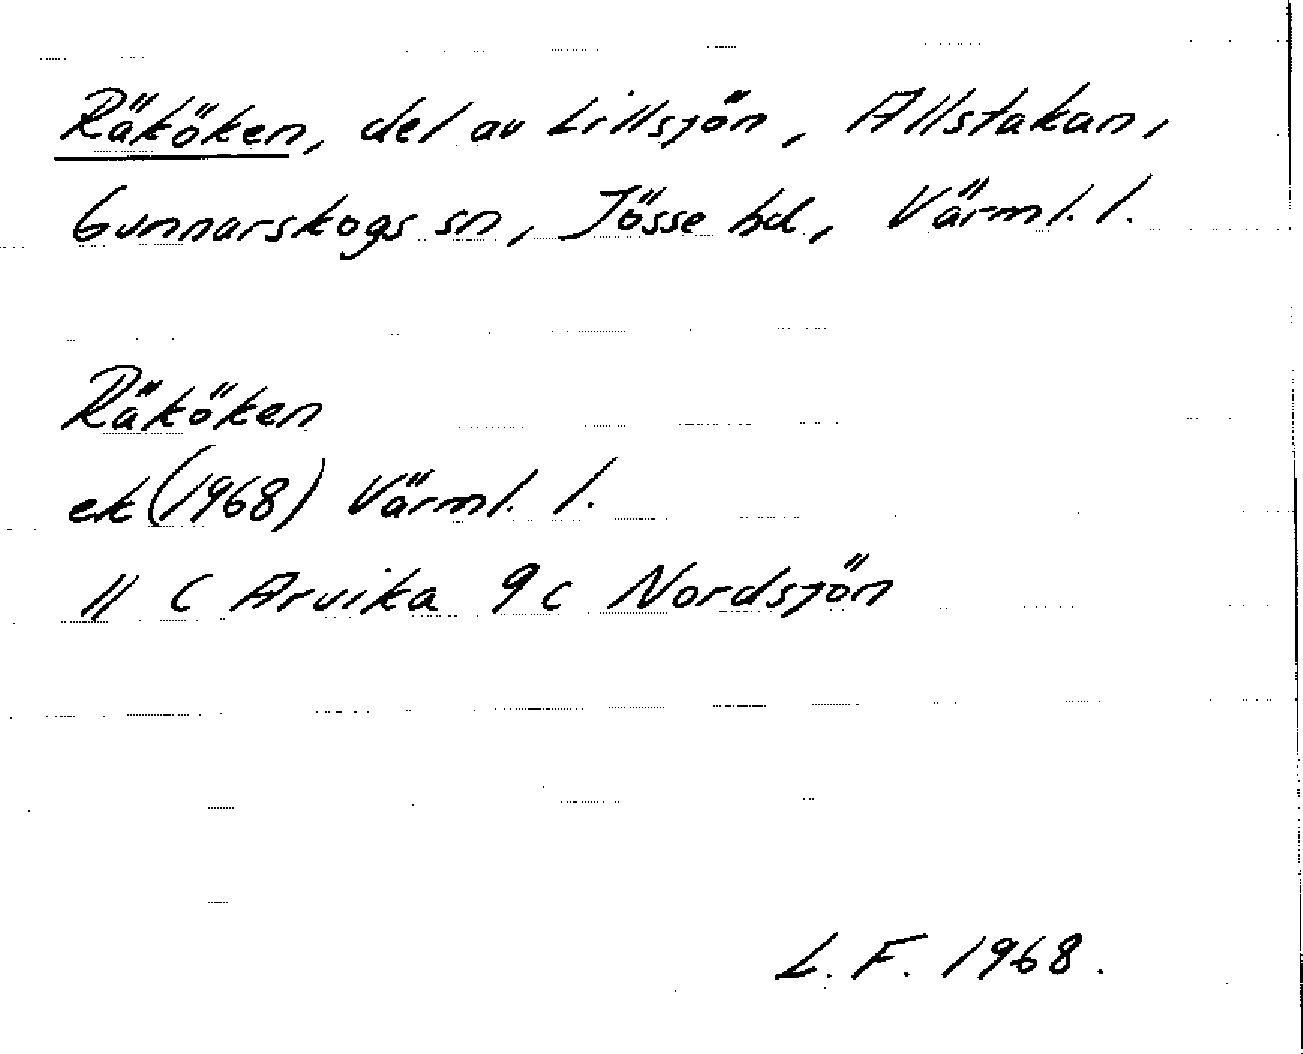 Räköken, del av Lillsjön, Allstakan,
Gunnarskogs sn, Jösse hd, Värml. l.
Räköken
ek (1968) Värml. l.
11 C Arvika 9c Nordsjön
L. F. 1968.